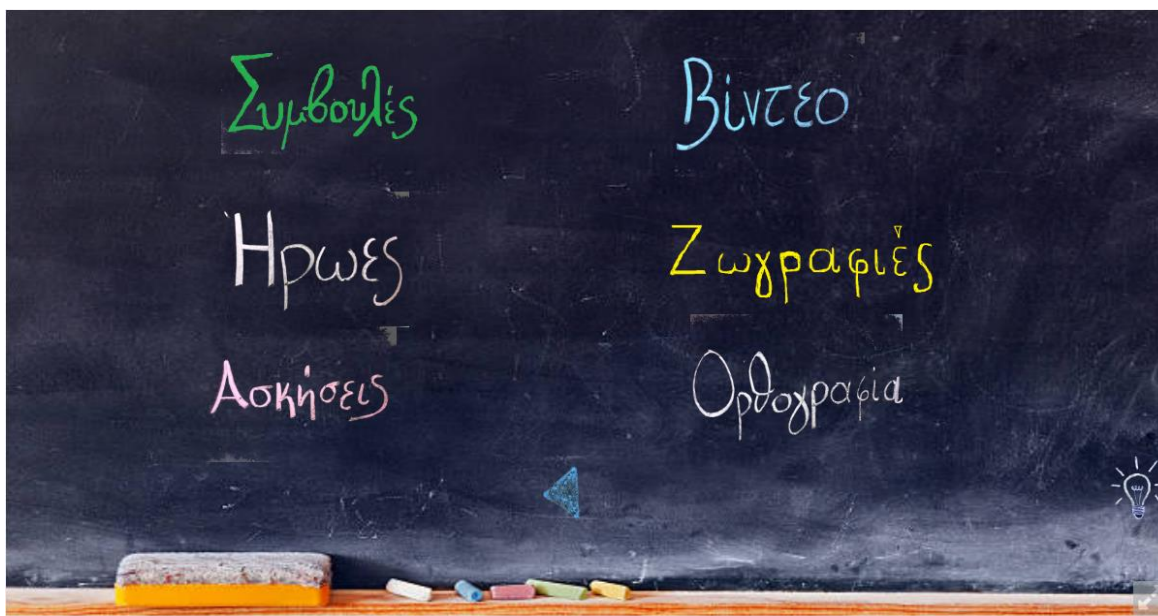 Συμβουλές
Βίντεο
Ήρωες
Ζωγραφιές
Ασκήσεις
Ορθογραφία